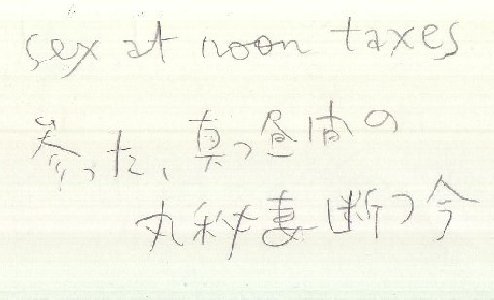 sex at noon taxes
参った、真っ昼間の
丸秘妻断つ今